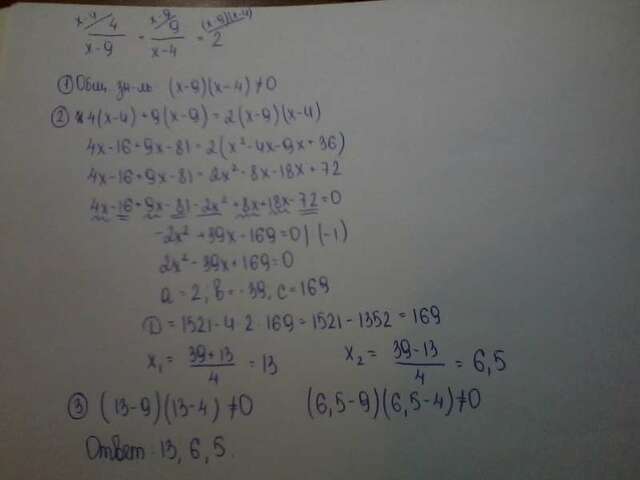 x-4/ 4/(x-9) + x-9/ 9/(x-4) = (x-9)(x-4)/ 2
① Общ. зн-ль (x-9)(x-4)≠0
② 4(x-4)+9(x-9)=2(x-9)(x-4)
4x-16+9x-81=2(x²-4x-9x+36)
4x-16+9x-81=2x²-8x-18x+72
4x-16+9x-81-2x²+8x+18x-72=0
-2x²+39x-169=0|(-1)
2x²-39x+169=0
a=2; b=-39, c=169
D=1521-4·2·169=1521-1352=169
x₁=(39+13)/4=13 x₂=(39-13)/4=6,5
③ (13-9)(13-4)≠0 (6,5-9)(6,5-4)≠0
Ответ: 13, 6,5.